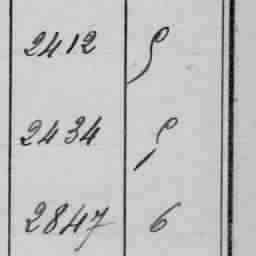 2412
2434
2847 6